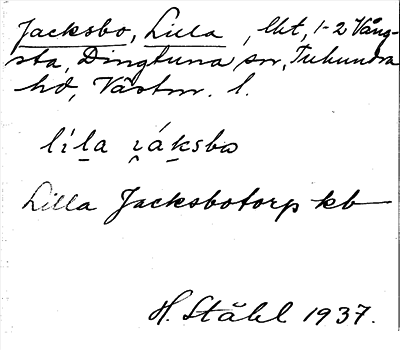 Jacksbo, Lilla, lht, 1-2 Vång-
sta, Dingtuna sn, Tuhundra
hd, Västm. l.
líla i̯áksbo
Lilla Jacksbotorp kb
H. Ståhl 1937.